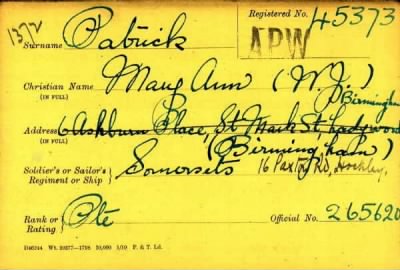 1372
Registered No. 45373
Surname Patrick
APW
Christian Name Mary Ann (W.J.)
(IN FULL)
Birmingham
Address 6 Ashburn Place, St Marks St, Ladywood
(IN FULL) (Birmingham)
16 Paxton Rd, Hockley,
Soldier's or Sailor's Somersets
Regiment or Ship
Rank or Pte Official No. 265620
Rating
D46744 Wt. 20277—1798 50,000 1/19 F. & T. Ld.